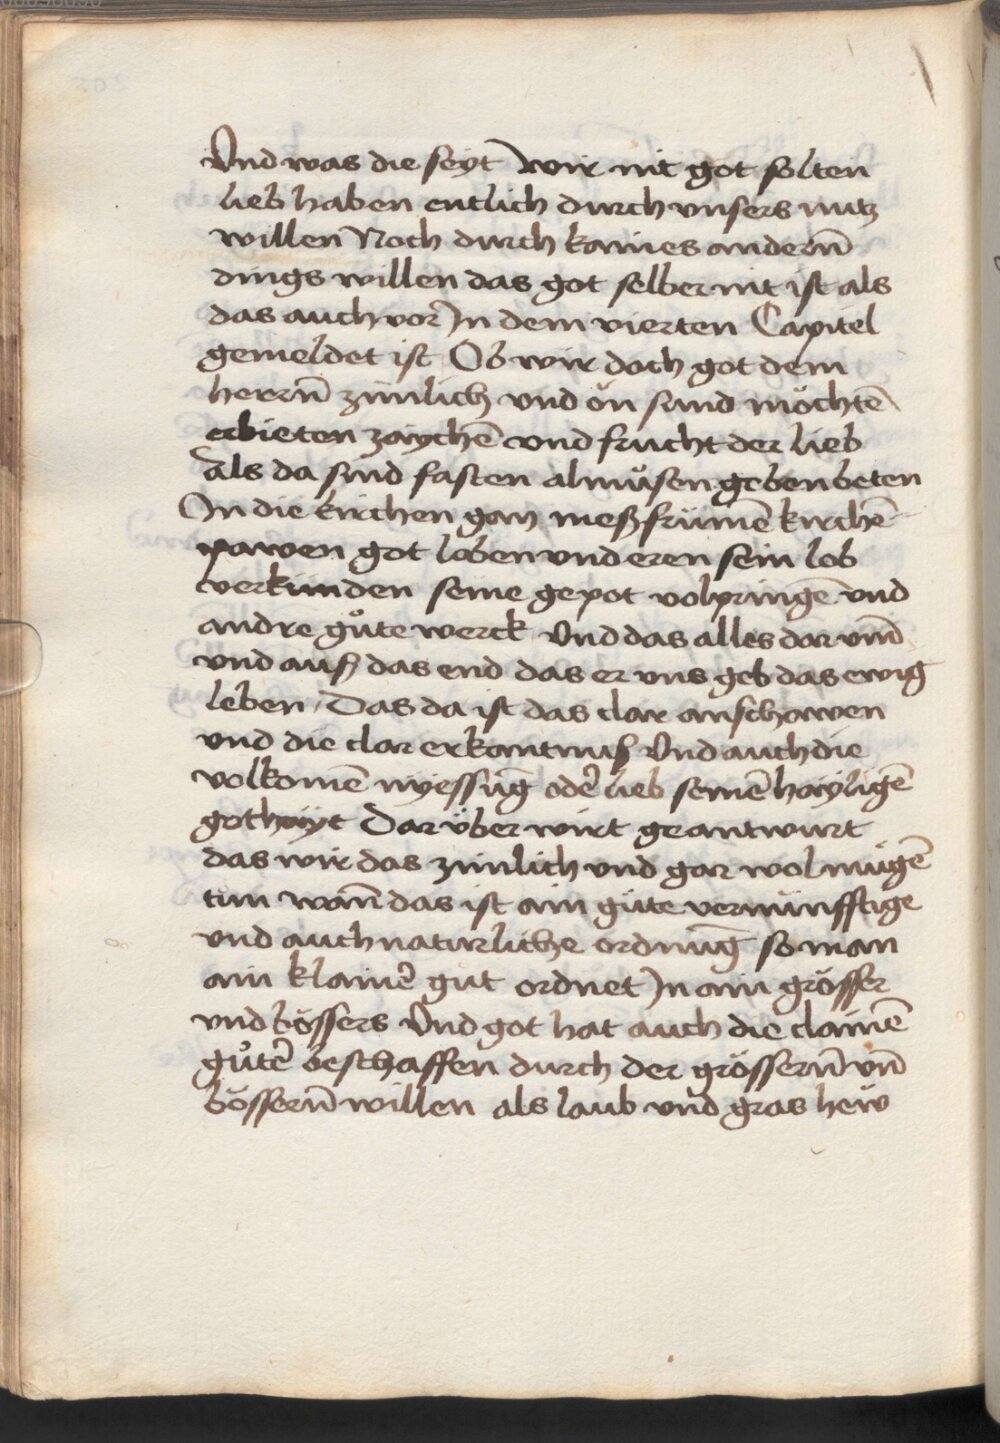 Vnd was die seyt wir nit got solten
lieb haben entlich durch vnsers nutz
willen Noch durch kaines andern̄
dings willen das got selber nit ist als
das auch vor Jn dem vierten Capitel
gemeldet ist Ob wir doch got dem
herrn̄ zimlich vnd on sund möchtē
erbieten zaychē vnd frucht der lieb
als da sind fasten almůsen geben beten
In die kirchen gan meß frümē kirchē
pawen got loben vnd eren sein lob
verkunden seine gepot volpringē vnd
andre gůte werck Vnd das alles dar vm̄
vnd auß das end das er vns geb das ewig
leben Das da ist das clar anschawen
vnd die clar erkantnuß Vnd auch die
volkomē nyessūg oder lieb seinē hayligē
gothayt Dar über wirt geantwurt
das wir das zimlich vnd gar wol mügē
tun wan̄ das ist ain gůte vernünfftige
vnd auch naturliche ordnūg so man
ain klainer gut ordnet Jn ain grösser
vnd bössers Vnd got hat auch die clainē
gůter beschaffen durch der grössern̄ vn̄
bössern̄ willen als laub vnd gras hew